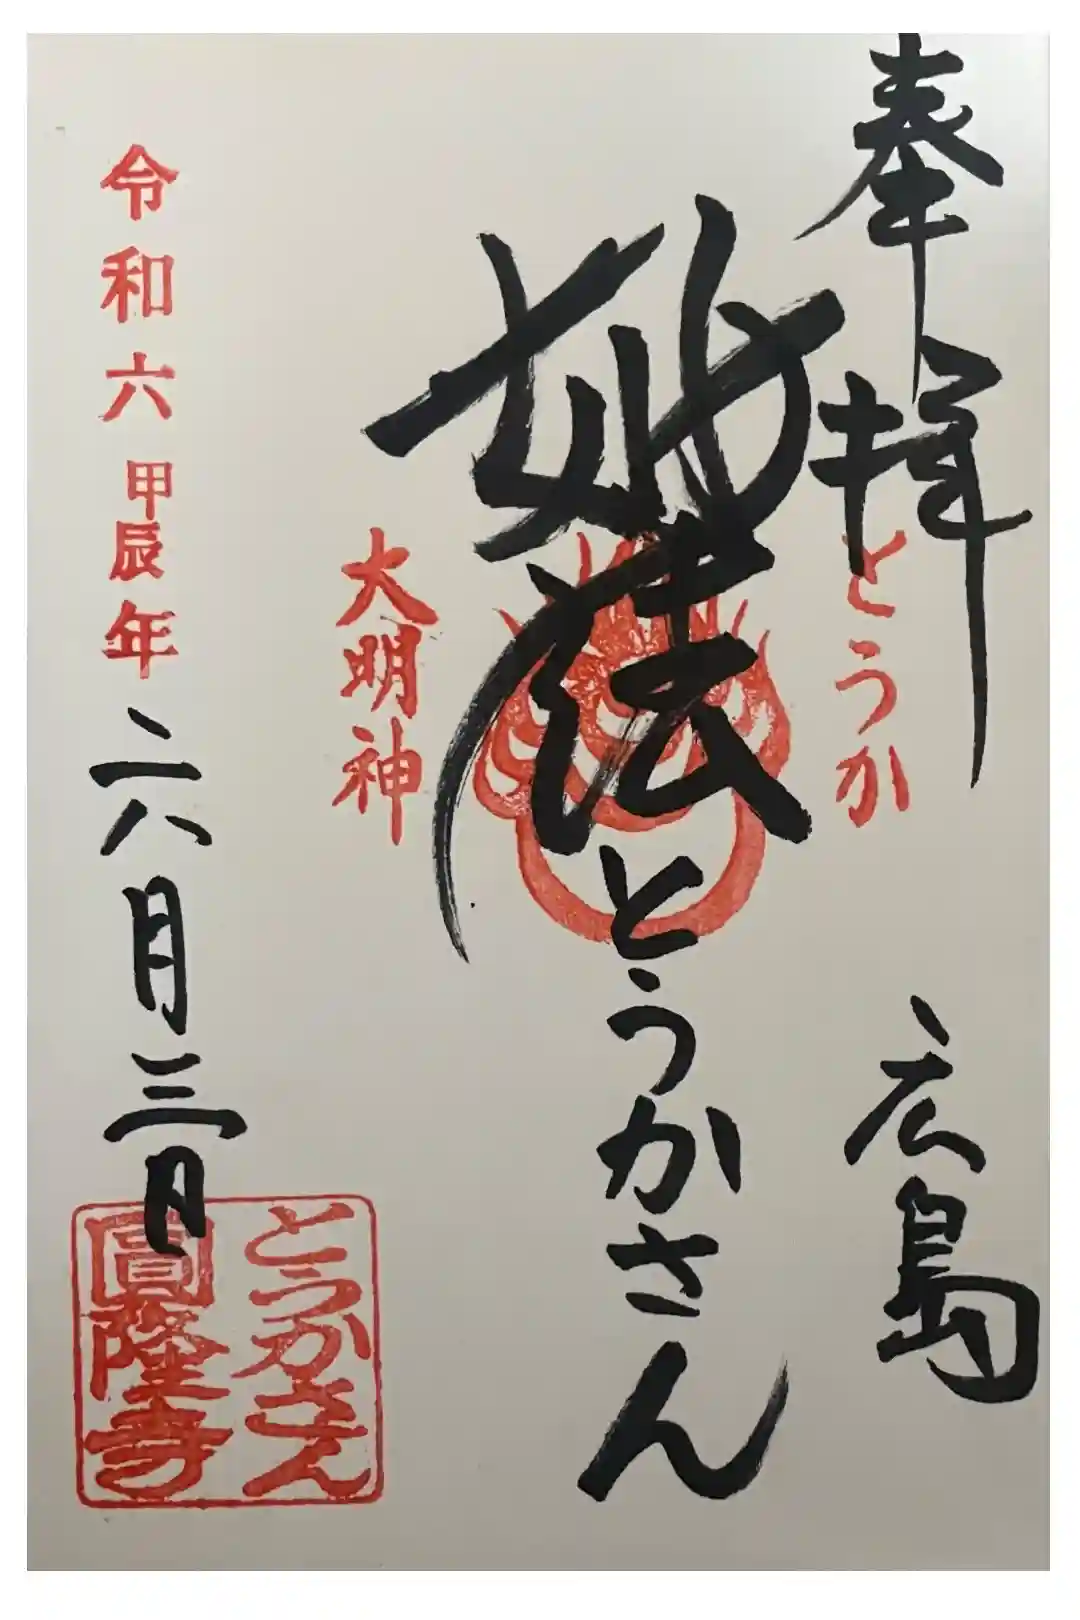 奉拝
とうか
広島
妙法
とうかさん
大明神
令和六甲辰年六月三日
とうかさん
圓隆寺